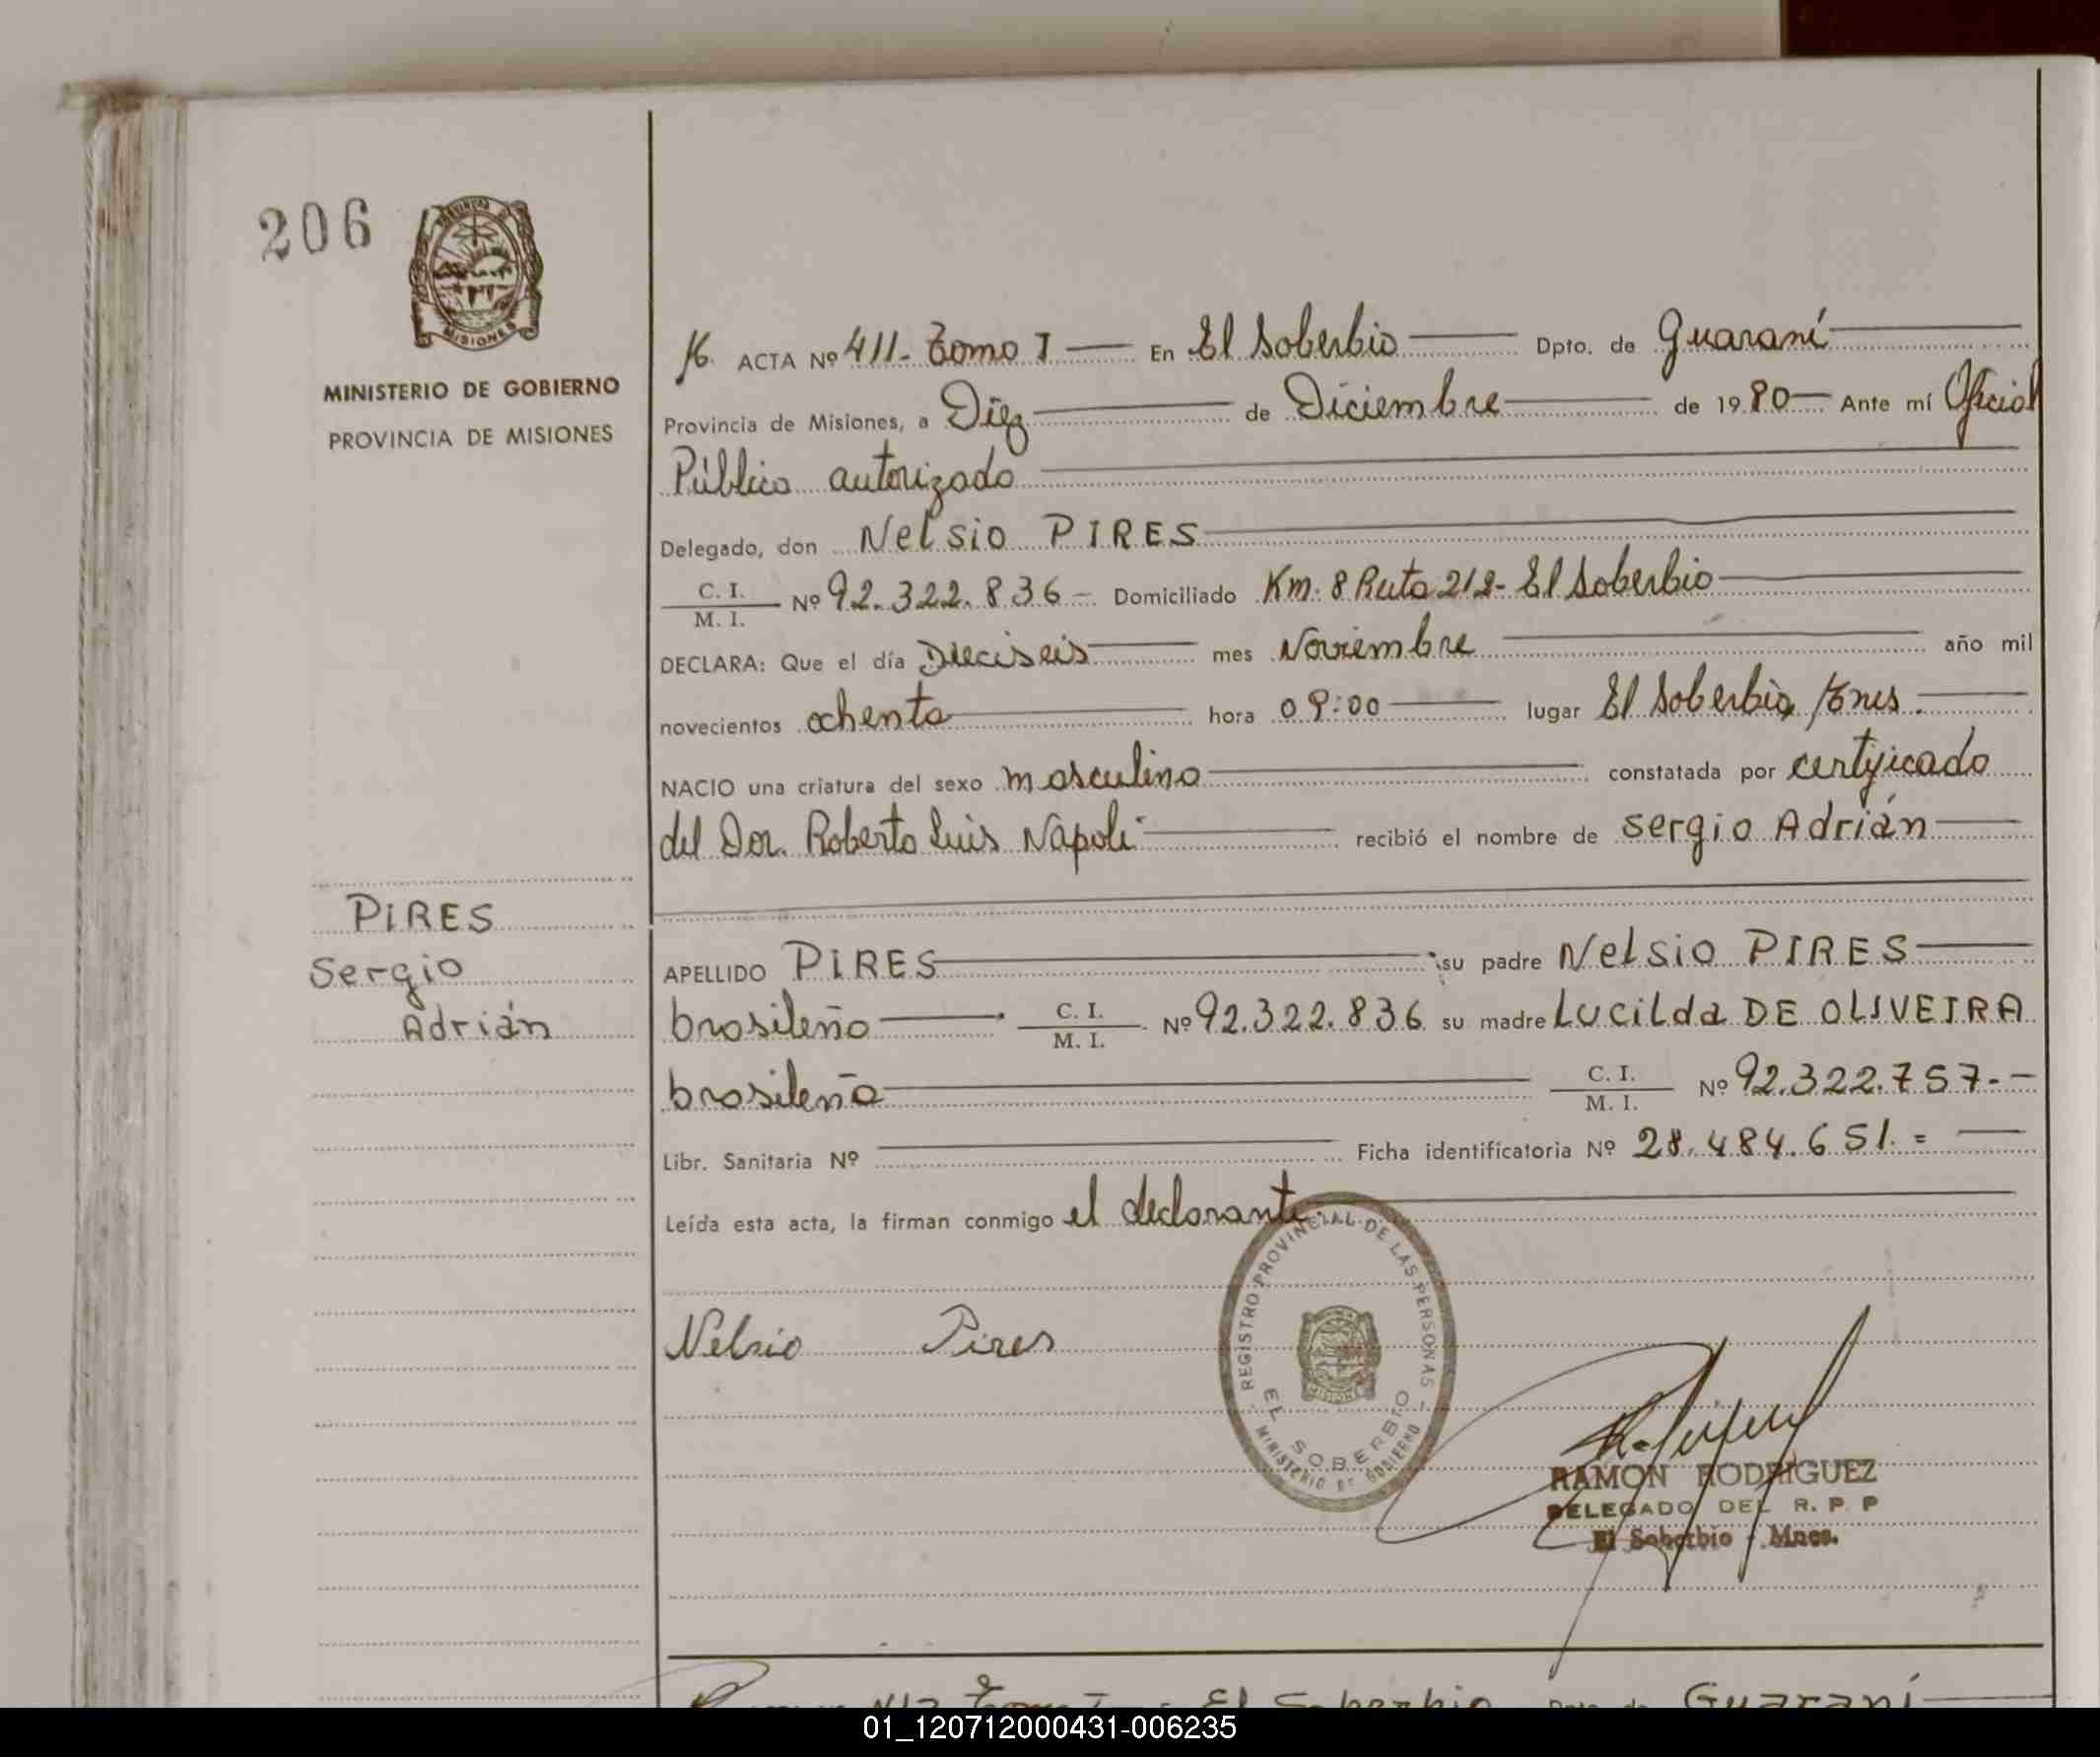 206
MINISTERIO DE GOBIERNO
PROVINCIA DE MISIONES
ACTA Nº 411- Tomo I En El Soberbio Dpto. de Guaraní
Provincia de Misiones, a Diez de Diciembre de 1980 Ante mí Oficial
Público autorizado
Delegado, don Nelsio PIRES
C. I. / M. I. Nº 92.322.836 - Domiciliado Km. 8 Ruta 212- El Soberbio
DECLARA: Que el día Dieciseis mes Noviembre año mil
novecientos ochenta hora 09:00 lugar El Soberbio
NACIO una criatura del sexo masculino constatada por certificado
del Dor. Roberto Luis Napoli recibió el nombre de Sergio Adrián
PIRES
Sergio
Adrián
APELLIDO PIRES su padre Nelsio PIRES
brasileño C. I. / M. I. Nº 92.322.836 su madre Lucilda DE OLIVEIRA
brasileña C. I. / M. I. Nº 92.322.757.-
Libr. Sanitaria Nº Ficha identificatoria Nº 28.484.651.=
Leída esta acta, la firman conmigo el declarante.
REGISTRO PROVINCIAL DE LAS PERSONAS
EL SOBERBIO
MINISTERIO DE GOBIERNO
MISIONES
Nelsio Pires
RAMON RODRIGUEZ
DELEGADO DEL R. P. P
El Soberbio - Mnes.
El Soberbio Dpto. de Guaraní
01_120712000431-006235